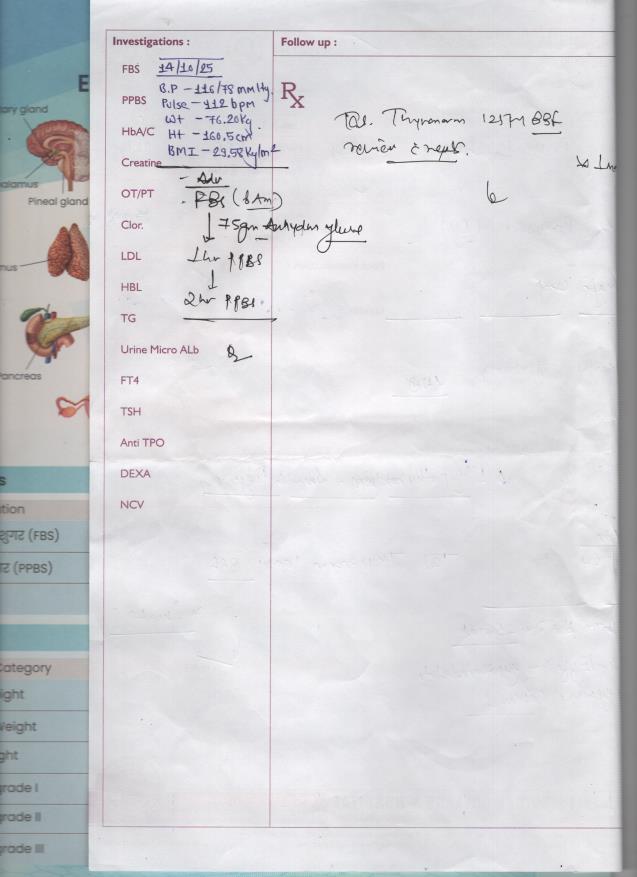 E
tary gland
halamus
Pineal gland
mus
Pancreas
s
tion
शुगर (FBS)
र (PPBS)
Category
ight
Weight
ght
grade I
grade II
grade III
Investigations :
FBS 14/10/25
B.P - 116/78 mmHg.
PPBS Pulse - 112 bpm
Wt - 76.20kg
HbA/C Ht - 160.5cm
BMI - 29.58 Kg/m2
Creatine
- Adv
OT/PT . FBS (8 Am)
Clor. ↓ 75gm Anhydrous glucose
LDL 1hr PPBS
↓
HBL 2hr PPBS.
TG
Urine Micro ALb
FT4
TSH
Anti TPO
DEXA
NCV
Follow up :
Rx
Tab. Thyronorm BBF
review c reports.